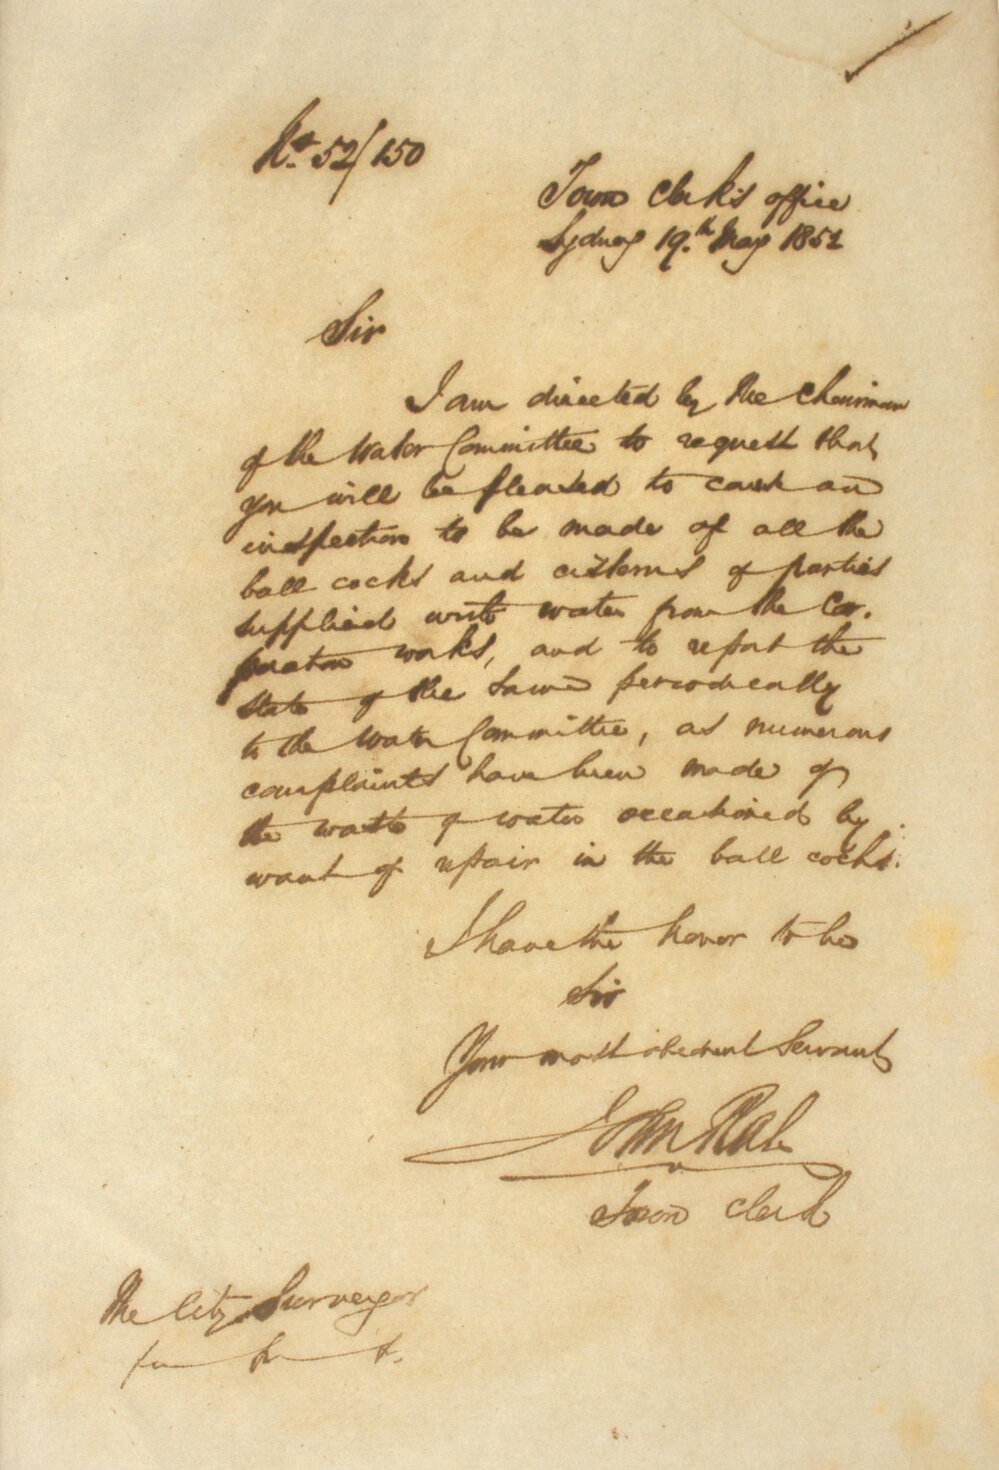 No. 52/150
Town Clerk's office
Sydney 19.th May 1852
Sir
I am directed by the Chairman
of the Water Committee to request that
you will be pleased to cause an
inspection to be made of all the
ball cocks and cisterns of parties
supplied with water from the Cor.
poration works, and to report the
state of the same periodically
to the Water Committee, as numerous
complaints have been made of
the waste of water occasioned by
want of repair in the ball cocks.
I have the honor to be
Sir
Your most obedient Servant
John Rae
Town Clerk
The City Surveyor